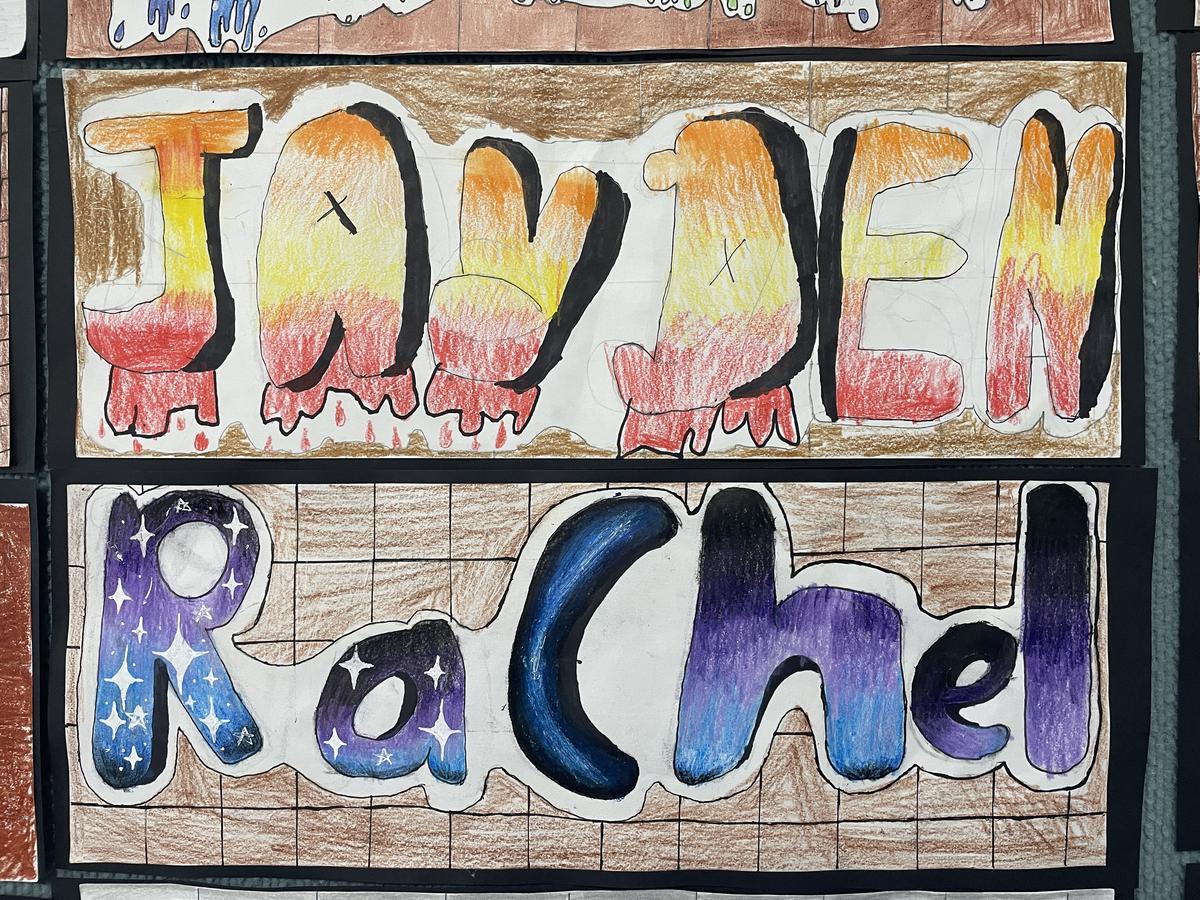 JAYDEN
RaChel